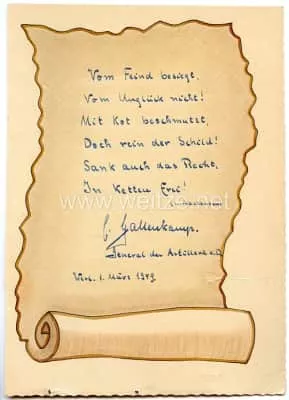 Vom Feind besiegt,
Vom Unglück nicht!
Mit Kot beschmutzt,
Doch rein der Schild!
Sank auch das Recht,
In Ketten frei!
C. Gallenkamp.
General der Artillerie a.D.
Werl. 1. März 1949.